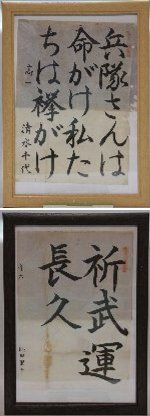 兵隊さんは
命がけ私た
ちは襷がけ
高一 清水千代
祈武運
長久